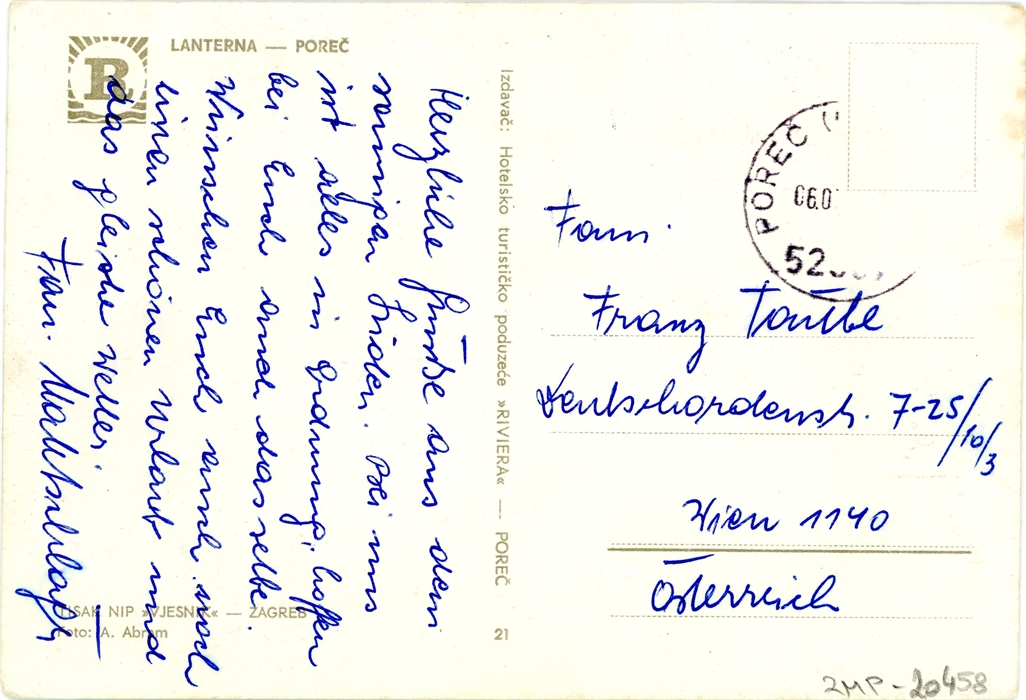 LANTERNA — POREČ
R
Herzliche Grüße aus dem
sonnigen Süden. Bei uns
ist alles in Ordnung, hoffen
bei Euch auch dasselbe.
Wünschen Euch auch noch
einen schönen Urlaub und
das gleiche Wetter.
Fam.
TISAK NIP »VJESNIK« — ZAGREB
Foto: A. Abram
Izdavač: Hotelsko turističko poduzeće »RIVIERA« — POREČ
21
POREČ
06.0
52
Fam.
Franz Taube
Deutschordenstr. 7-25/10/3
Wien 1140
Österreich
ZMP-20458